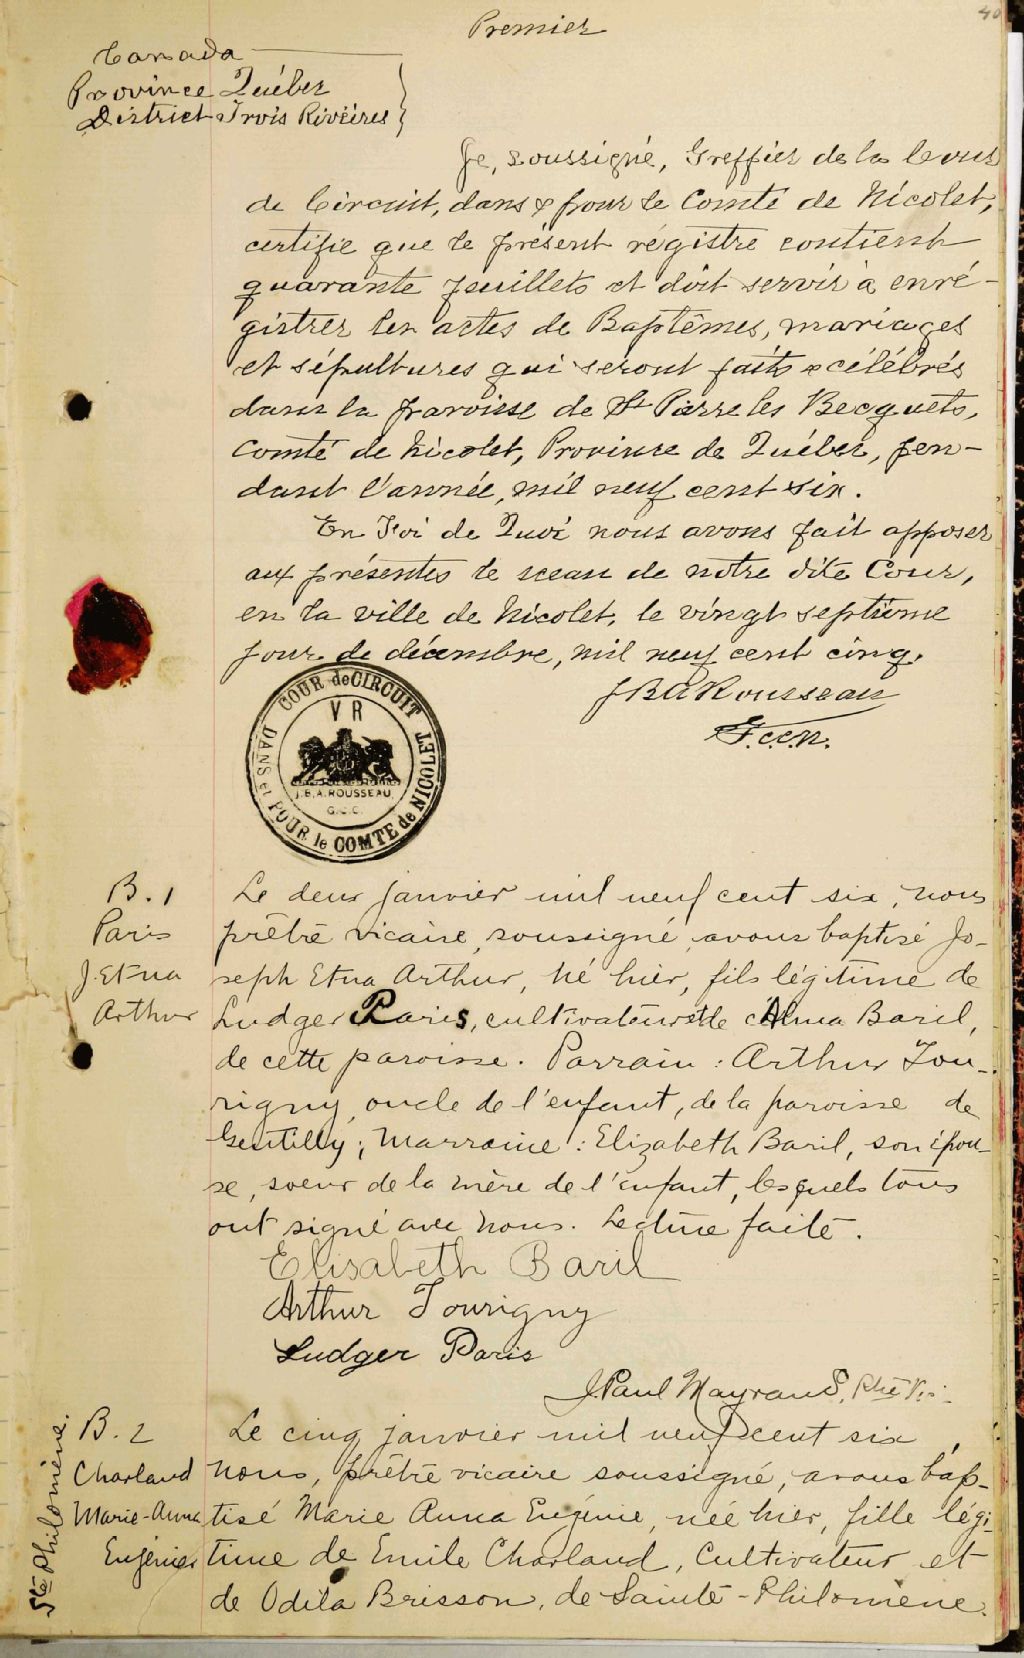 40
Premier
Canada
Province Québec
District Trois Rivières
Je, soussigné, Greffier de la Cour
de Circuit, dans & pour le Comté de Nicolet,
certifie que le présent régistre contient
quarante feuillets et doit servir à enré-
gistrer les actes de Baptêmes, mariages
et sépultures qui seront faits & célébrés
dans la paroisse de St Pierre les Becquets,
Comté de Nicolet, Province de Québec, pen-
dant l'année, mil neuf cent six.
En Foi de Quoi nous avons fait apposer
aux présentes le sceau de notre dite Cour,
en la ville de Nicolet, le vingt septième
jour de décembre, mil neuf cent cinq.
JBARousseau
G.c.c.n.
COUR de CIRCUIT
DANS et POUR le COMTE de NICOLET
V R
J.B.A. ROUSSEAU,
G.C.C.
B. 1
Paris
J. Etna
Arthur
Le deux janvier mil neuf cent six, nous
prêtre vicaire, soussigné, avons baptisé Jo-
seph Etna Arthur, né hier, fils légitime de
Ludger Paris, cultivateur et de Alma Baril,
de cette paroisse. Parrain : Arthur Tou-
rigny, oncle de l'enfant, de la paroisse de
Gentilly; Marraine : Elizabeth Baril, son épou-
se, soeur de la mère de l'enfant, lesquels tous
ont signé avec nous. Lecture faite.
Elisabeth Baril
Arthur Tourigny
Ludger Paris
J. Paul Mayrand, Ptre Vic.
B. 2
Charland
Marie-Anna
Eugénie
Ste Philomène.
Le cinq janvier mil neuf cent six,
nous, prêtre vicaire soussigné, avons bap-
tisé Marie Anna Eugénie, née hier, fille légi-
time de Emile Charland, Cultivateur et
de Odila Brisson, de Sainte-Philomène.